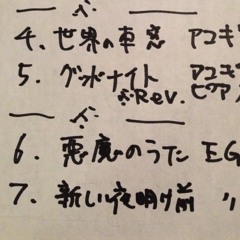 4. 世界の車窓 アコギ
5. グッドナイト アコギ
Rev. ピアノ
6. 悪魔のうた EG
7. 新しい夜明け前 〃